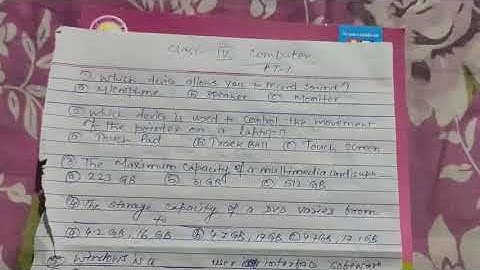 Class IV Computer
PT-1
① Which device allows you to record sound?
ⓐ Microphone ⓑ Speaker ⓒ Monitor
② Which device is used to control the movement
of the pointer on a laptop?
ⓐ Touch Pad ⓑ Track Ball ⓒ Touch screen
③ The Maximum capacity of a multimedia card is
ⓐ GB ⓑ GB ⓒ 512 GB
④ The storage capacity of a DVD varies from
to
ⓐ 4.2 GB, 16 GB ⓑ 4.7 GB, 17 GB ⓒ 4.7 GB, 17.1 GB
⑤ Windows is a user interface software